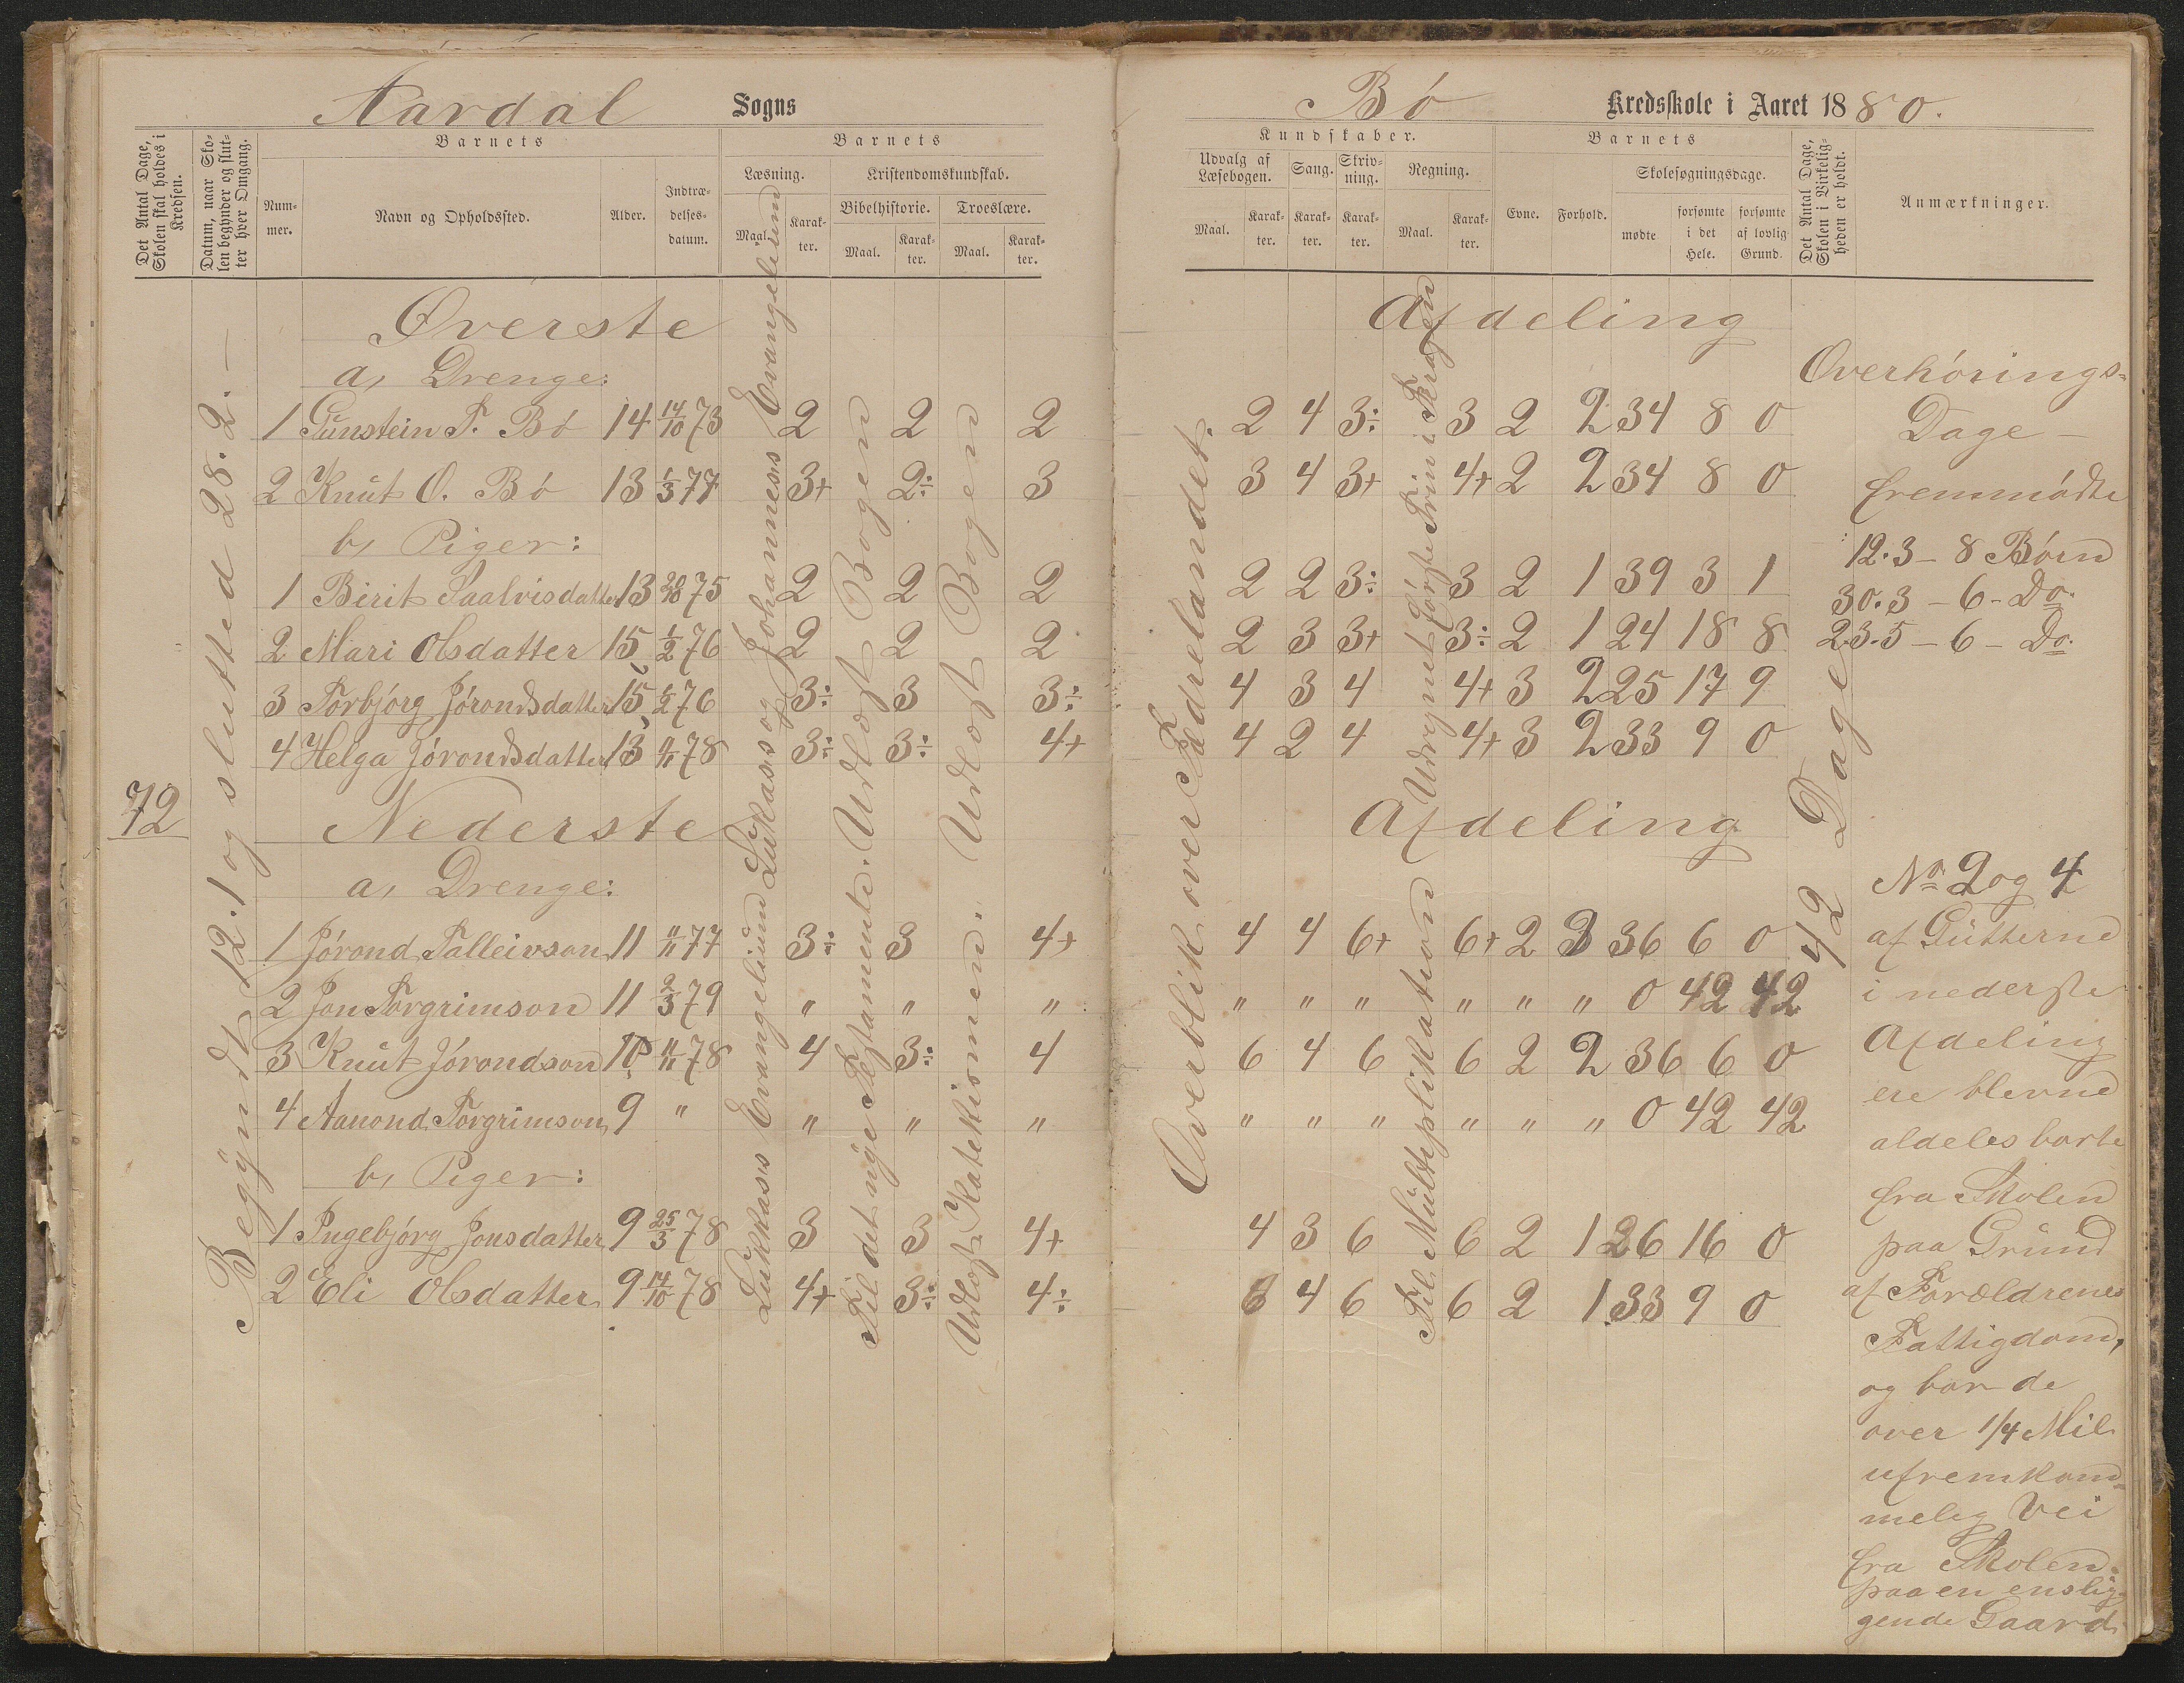 Aardal Sogns
Det Antal Dage, Skolen skal holdes i Kredsen.
Datum, naar Skolen begynder og slutter hver Omgang.
Barnets
Nummer.
Navn og Opholdssted.
Alder.
Indtrædelsesdatum.
Barnets
Læsning.
Maal.
Karakter.
Kristendomskundskab.
Bibelhistorie.
Maal.
Karakter.
Troeslære.
Maal.
Karakter.
Øverste
a, Drenge:
1 Gunstein T. Bó 14 14/10 73 2 2 2
2 Knut O. Bó 13 1/3 77 3+ 2÷ 3
b, Piger:
1 Birit Saalvisdatter 13 20/10 75 2 2 2
2 Mari Olsdatter 15 1/2 76 2 2 2
3 Torbjórg Jórondsdatter 15 1/2 76 3÷ 3 3÷
4 Helga Jórondsdatter 13 11/11 78 3÷ 3÷ 4+
72
Nederste
a, Drenge:
1 Jórond Talleivson 11 11/11 77 3÷ 3 4+
2 Jon Torgrimson 11 2/3 79 " " "
3 Knut Jórondson 10 11/11 78 4 3÷ 4
4 Aanond Torgrimson 9 " " " "
b, Piger:
1 Ingebjórg Jonsdatter 9 25/3 78 3 3 4+
2 Eli Olsdatter 9 14/10 78 4+ 3÷ 4÷
Begyndt 12.1 og slutted 28.2.—
Lukkas's Evangelium Lukas's og Johannes's Evangelium
Til det nye Testamente. Udlært Bogen
Udlært Katekismen. Udlært Bogen
Bó Kredsskole i Aaret 1880.
Kundskaber.
Udvalg af Læsebogen.
Maal.
Karakter.
Sang.
Karakter.
Skrivning.
Karakter.
Regning.
Maal.
Karakter.
Barnets
Evne.
Forhold.
Skolesøgningsdage.
mødte
forsømte i det Hele.
forsømte af lovlig Grund.
Det Antal Dage, Skolen i Virkeligheden er holdt.
Anmærkninger.
Afdeling
2 4 3÷ 3 2 2 34 8 0
3 4 3+ 4+ 2 2 34 8 0
2 2 3÷ 3 2 1 39 3 1
2 3 3+ 3÷ 2 1 24 18 8
4 3 4 4+ 3 2 25 17 9
4 2 4 4+ 3 2 33 9 0
Afdeling
4 4 6+ 6+ 2 3 36 6 0
" " " " " " 0 42 42
6 4 6 6 2 2 36 6 0
" " " " " " 0 42 42
4 3 6 6 2 1 26 16 0
6 4 6 6 2 1 33 9 0
Overblik over Fædrelandet.
Til Multiplikation
Udregnet Første Trin i Kragen
42 Dage
Overhórings-
Dage —
fremmódte
12.3 — 8 Børn
30.3 — 6 — Do.
23.5 — 6 — Do.
No 2 og 4
af Gutterne
i nederste
Afdeling
ere blevne
aldeles borte
fra Skolen
paa Grund
af Forældrenes
Fattigdom,
og bor de
over 1/4 Mil
ufremkom-
melig Vei
fra Skolen
paa en enslig-
gende Gaard